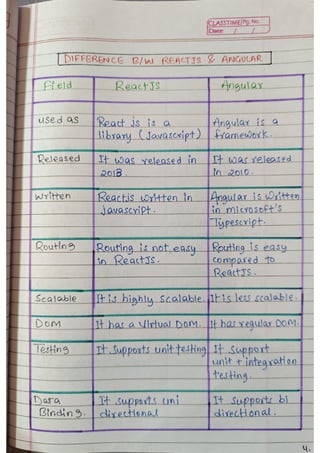 CLASSTIME Pg. No.
Date / /
DIFFERENCE B/W REACTJS & ANGULAR
Field ReactJS Angular
used as React Js is a Angular is a
library (Javascript) framework.
Released It was released in It was released
2013. in 2010.
Written Reactjs written in Angular is written
Javascript. in microsoft's
Typescript.
Routing Routing is not easy Routing is easy
in ReactJS. compared to
ReactJS.
Scalable It is highly scalable. It is less scalable.
DOM It has a Virtual DOM. It has regular DOM.
Testing It supports unit testing It support
unit + integration
testing.
Data It supports uni It supports bi
Binding. directional directional.
4.